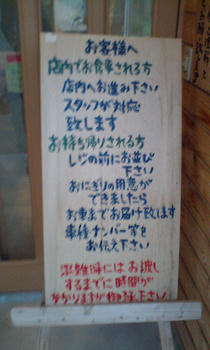 お客様へ
店内でお食事される方
店内へお進み下さい
スタッフが対応
致します
お持ち帰りされる方
レジの前にお並び
下さい
おにぎりの用意が
できましたら
お車までお届け致します
車種ナンバー等を
お伝え下さい
混雑時にはお渡し
するまでに時間が
かかりますが御了承下さい